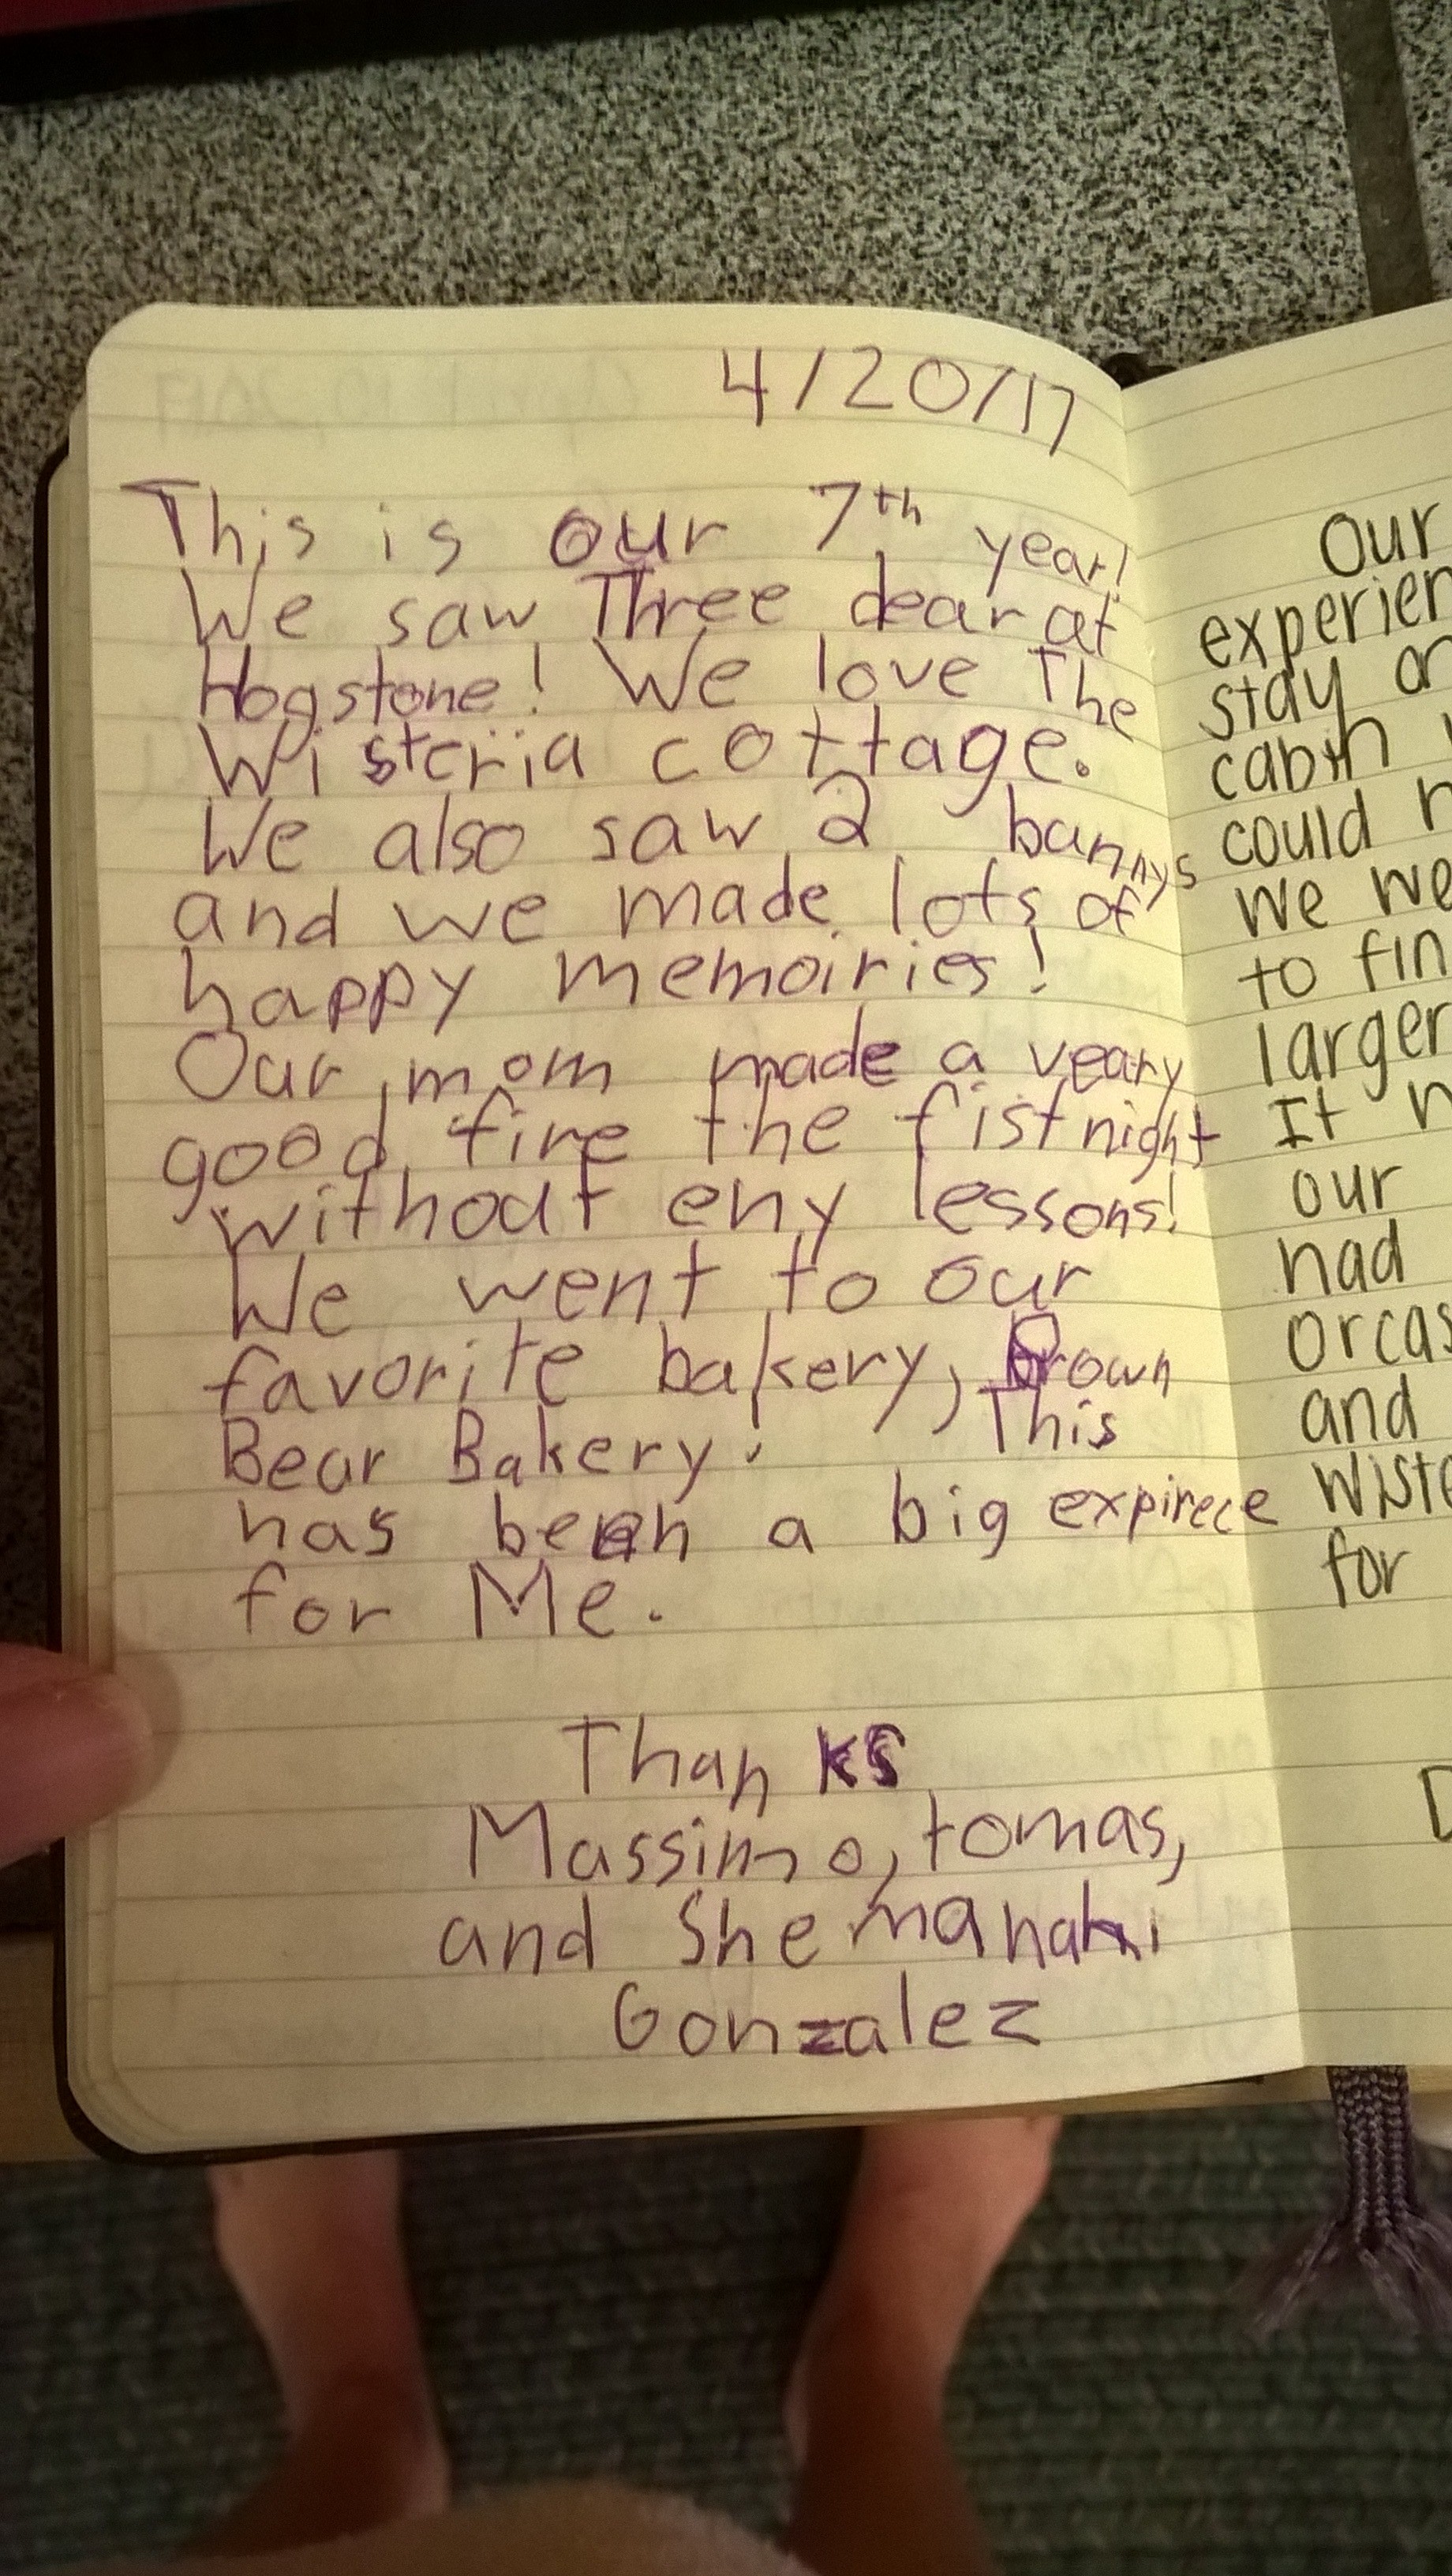 4/20/17
This is our 7th year!
We saw Three dear at
Hogstone! We love The
Wisteria cottage.
We also saw 2 bannys
and we made lots of
happy memoiries!
Our mom made a veary
good fire the fist night
without eny lessons!
We went to our
favorite bakery, Brown
Bear Bakery! This
has been a big expirece
for Me.
Thanks
Massimo, tomas,
and
Gonzalez
Our
stay
could
we we
to
larger
It
our
had
and
for